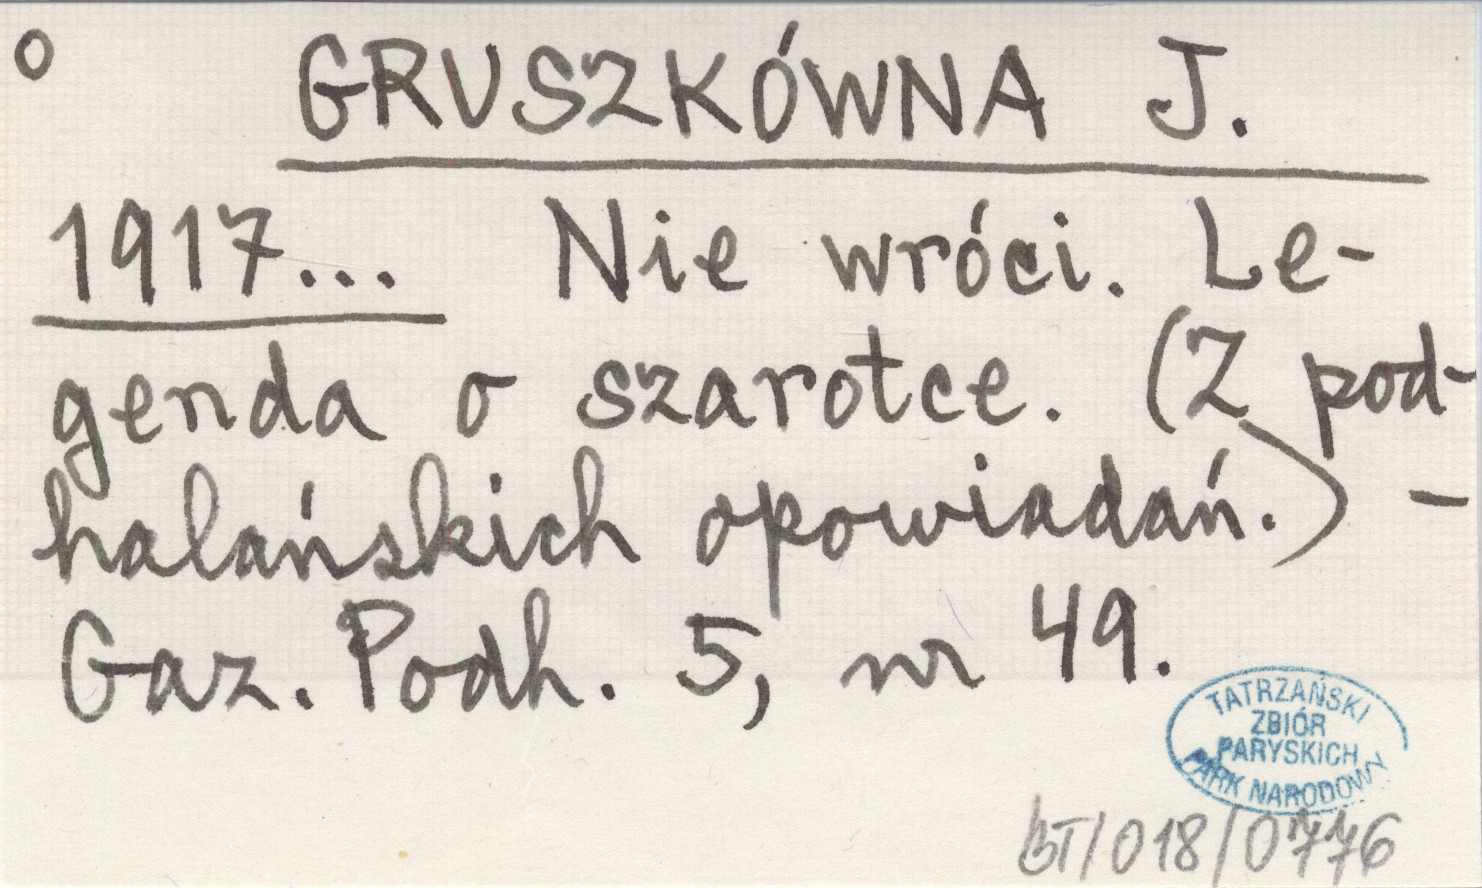 o GRUSZKÓWNA J.
1917... Nie wróci. Le-
genda o szarotce. (Z pod-
halańskich opowiadań.) -
Gaz. Podh. 5, nr 49.
TATRZAŃSKI
ZBIÓR
PARYSKICH
PARK NARODOWY
BT/018/0776